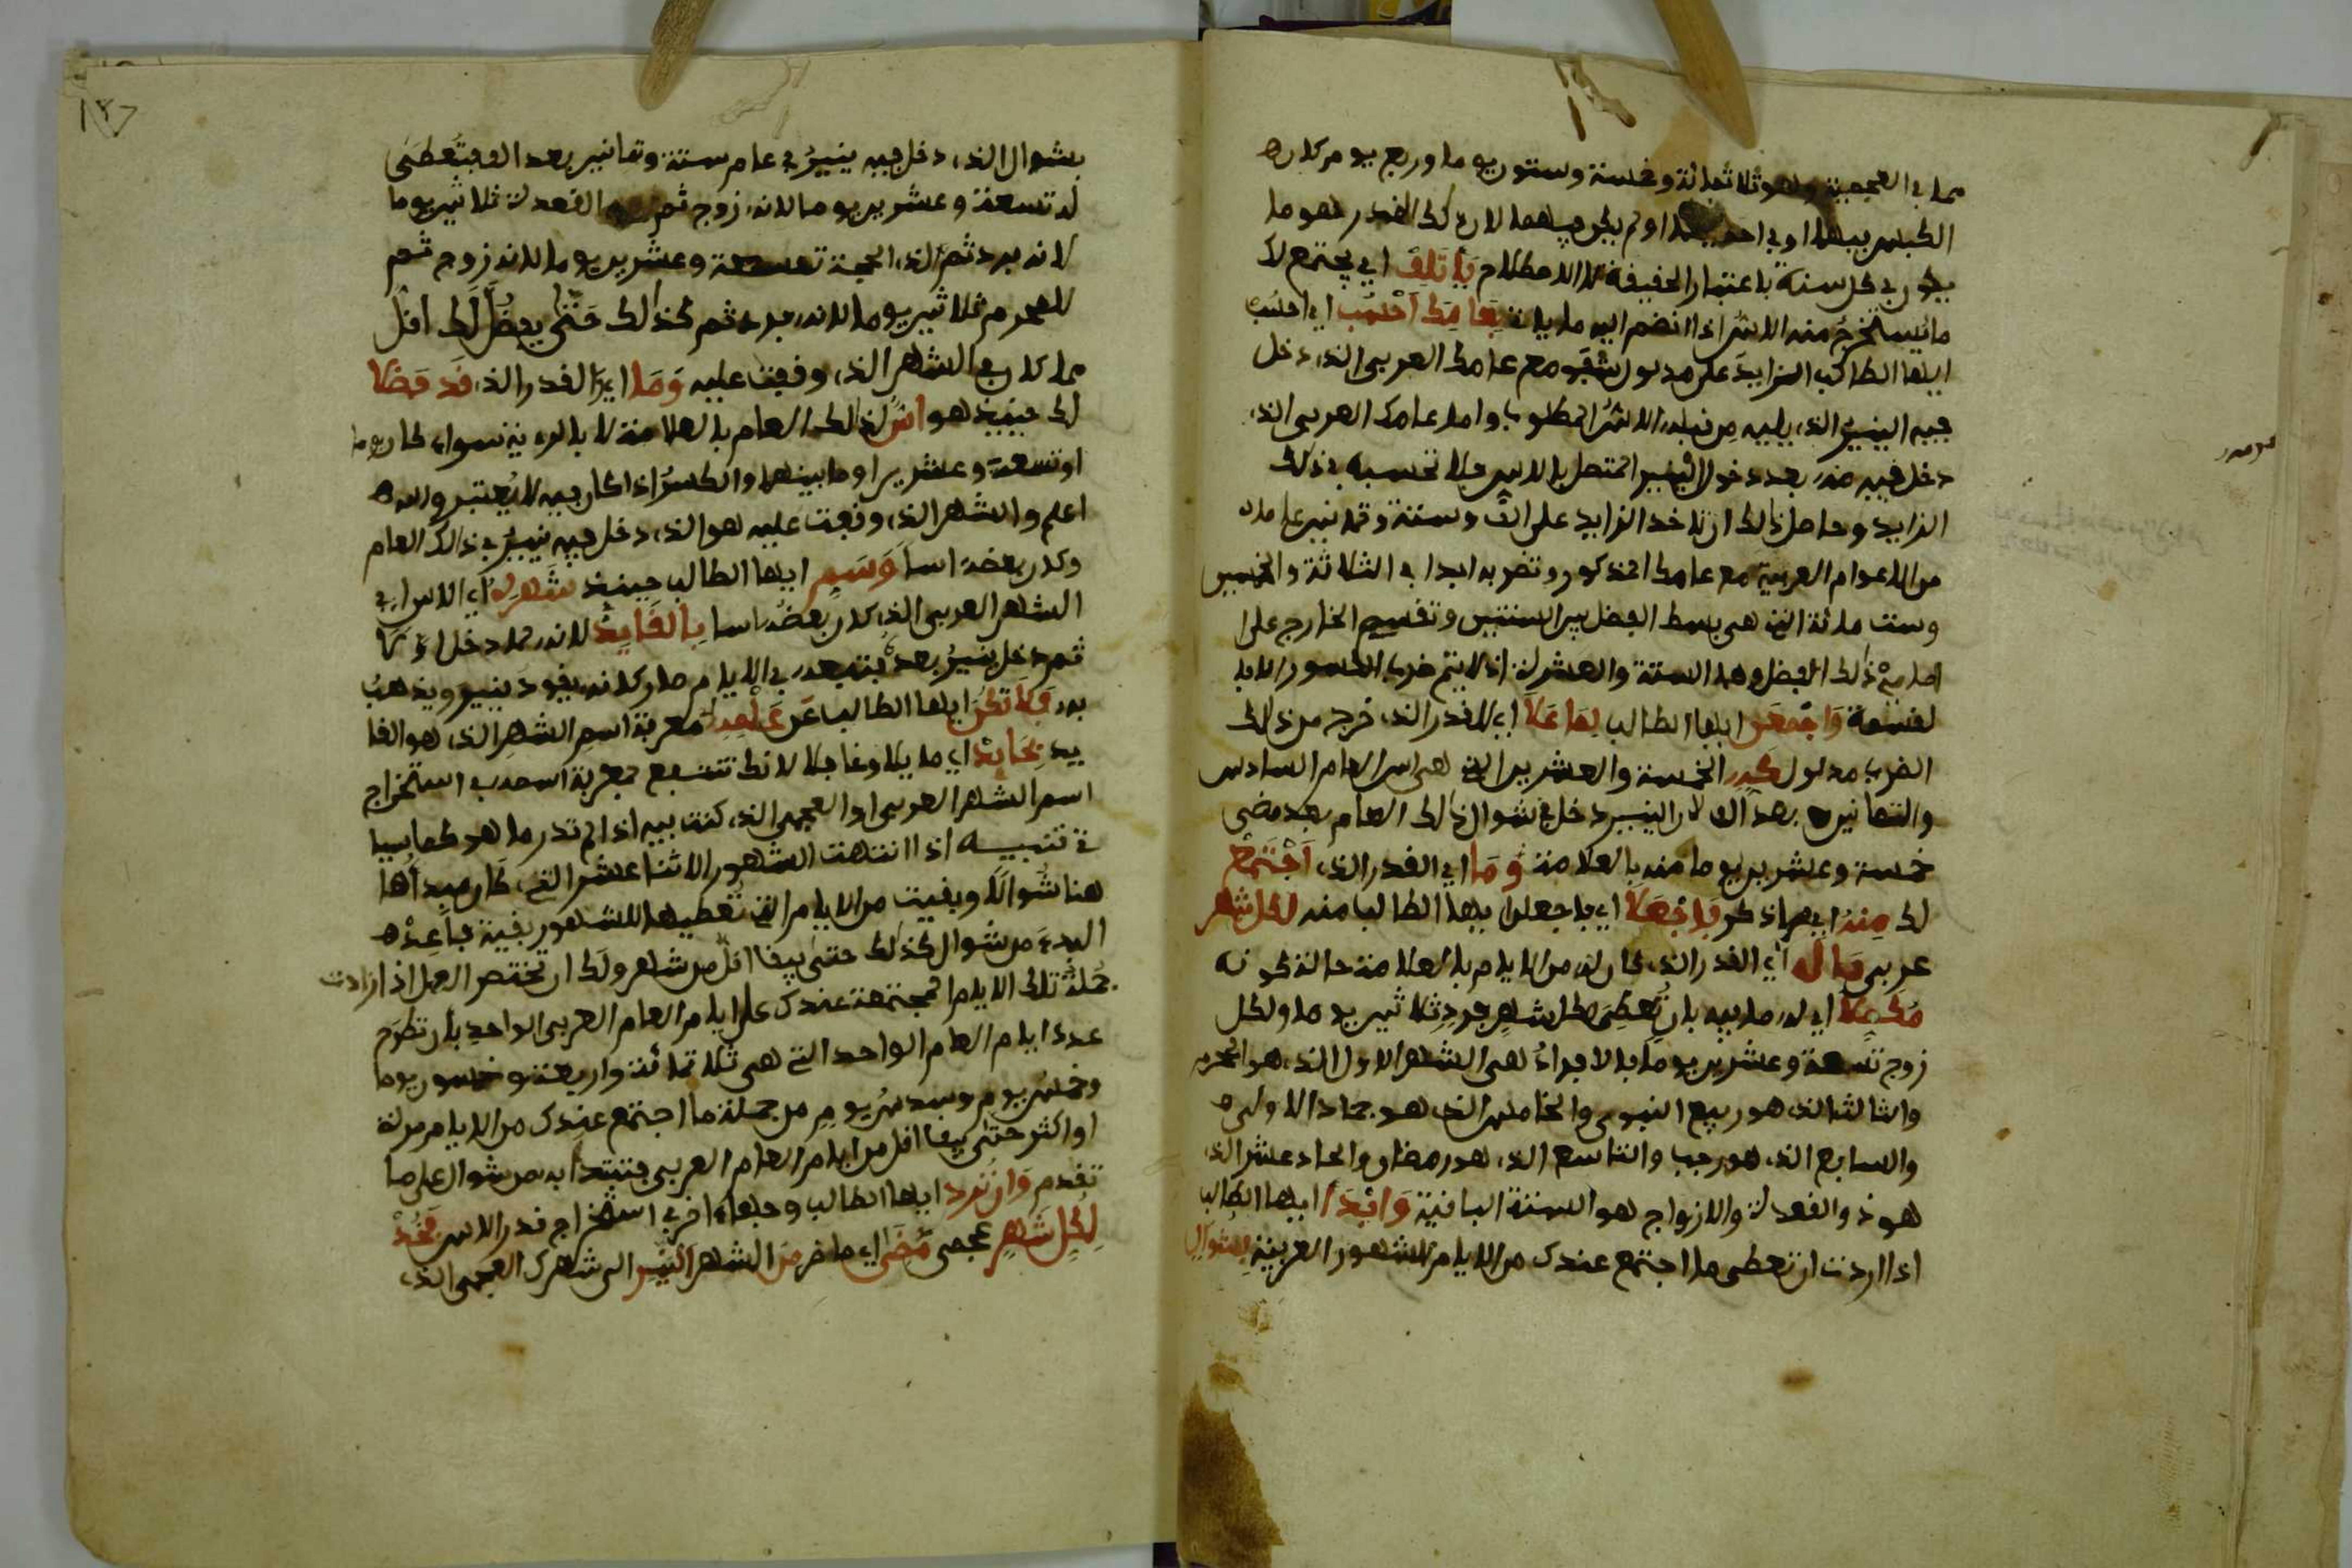 مما في العجمية وهو ثلاثمائة وخمسة وستون يوما وربع يوم كان
الكبس بيهما او في احديهما او لم يكن فيهما لان ذلك القدر هو ما
يكون في كل سنة باعتبار الحقيقة الاصطلاح يأتلف اي يجتمع لك
ما يستخرج منه الاس اذا انضم اليه ما يلي احسب اي احسب
ايها الطالب الزايد على مدلول مع عامك العربي الذي دخل
فيه الينير الذي يليه من قبله الاس المطلوب واما عامك العربي الذي
دخل فيه منه بعد دخول الينير المتصل بالاس فلا تحسبه في ذلك
الزايد وحاصل ذلك ان تاخذ الزايد على الف وستة وثمانين عاما
من الاعوام العربية مع عامك المذكور وتضربه ابدا في الثلاثة والخمسين
وست مائة التي هي بسط الفضل بين السنتين وتقسم الخارج على
امام ذلك الفضل وهما الستة والعشرون اذ لا يتم ضرب الكسور الا بال
لقسمة واجمعن ايها الطالب لما علا اي للقدر الذي خرج من ذلك
الضرب مدلول كدر الخمسة والعشرين التي هي اس العام السادس
والثمانين بعد الف لان الينير دخل في شوال ذلك العام بعد مضي
خمسة وعشرين يوما منه بالعلامة وما اي القدر الذي اجتمع
لك منه اي مما ذكر فاجعلا اي فاجعلن ايها الطالب منه لكل شهر
عربي ماله اي القدر الذي كان له من الايام بالعلامة حالة كونه
مكملا اي له ما فيه بان تعطي لكل شهر فرد ثلاثين يوما ولكل
زوج تسعة وعشرين يوما فالافراد هي الشهر الاول الذي هو المحرم
والثالث الذي هو ربيع النبوي والخامس الذي هو جمادا الاولى
والسابع الذي هو رجب والتاسع الذي هو رمضان والحاد عشر الذي
هو ذو القعدة والازواج هو الستة الباقية وابدأ ايها الطالب
اذا اردت ان تعطي ما اجتمع عندك من الايام للشهور العربية بشوال
١٢٧
بشوال الذي دخل فيه ينير في عام ستة وثمانين بعد الف فتعطى
له تسعة وعشرين يوما لانه زوج ثم القعدة ثلاثين يوما
لانه فرد ثم لذي الحجة تسعة وعشرين يوما لانه زوج ثم
للمحرم ثلاثين يوما لانه فرد ثم كذلك حتى يفضل لك اقل
مما كان في الشهر الذي وقفت عليه وما اي القدر الذي قد فضلا
لك حينيذ هو اس لذلك العام بالعلامة لا بالروية سواء كان يوما
او تسعة وعشرين او ما بينهما والكسر اذا كان فيه لا يعتبر والله
اعلم والشهر الذي وقفت عليه هو الذي دخل فيه ينير في ذلك العام
وكان بعضه اسا وسم ايها الطالب حينيذ شهره اي الاس اي
الشهر العربي الذي كان بعضه اسا بالقايد لانه لما دخل اولا
ثم دخل ينير بعده فتبعه في الايام صار كانه يقود ينير ويذهب
به فلا تكن ايها الطالب عن علمه معرفة اسم الشهر الذي هو القا
يد بحايد اي مايلا وغافلا لانك تنتفع بمعرفة اسمه في استخراج
اسم الشهر العربي او العجمي الذي كنت فيه اذا لم تدر ما هو كما سيا
تي تنبيه اذا انتهت الشهور الاثنا عشر التي كان مبدأها
هنا شوالا وبقيت من الايام التي تعطيها للشهور بقية فاعد
البدء من شوال كذلك حتى يبقا اقل من شهر ولك ان تختصر العمل اذا زادت
جملة تلك الايام المجتمعة عندك على ايام العام العربي الواحد بان تطرح
عدد ايام العام الواحد التي هي ثلاثمائة واربعة وخمسون يوما
وخمس يوم وسدس يوم من جملة ما اجتمع عندك من الايام مرة
او اكثر حتى يبقا اقل من ايام العام العربي فتبتدا به من شوال على ما
تقدم وان ترد ايها الطالب وجها اخر في استخراج قدر الاس فخذ
لكل شهر عجمي مضى اي ما مر من الشهر الينير الى شهرك العجمي الذي